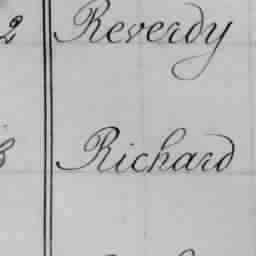 2 Reverdy
3 Richard